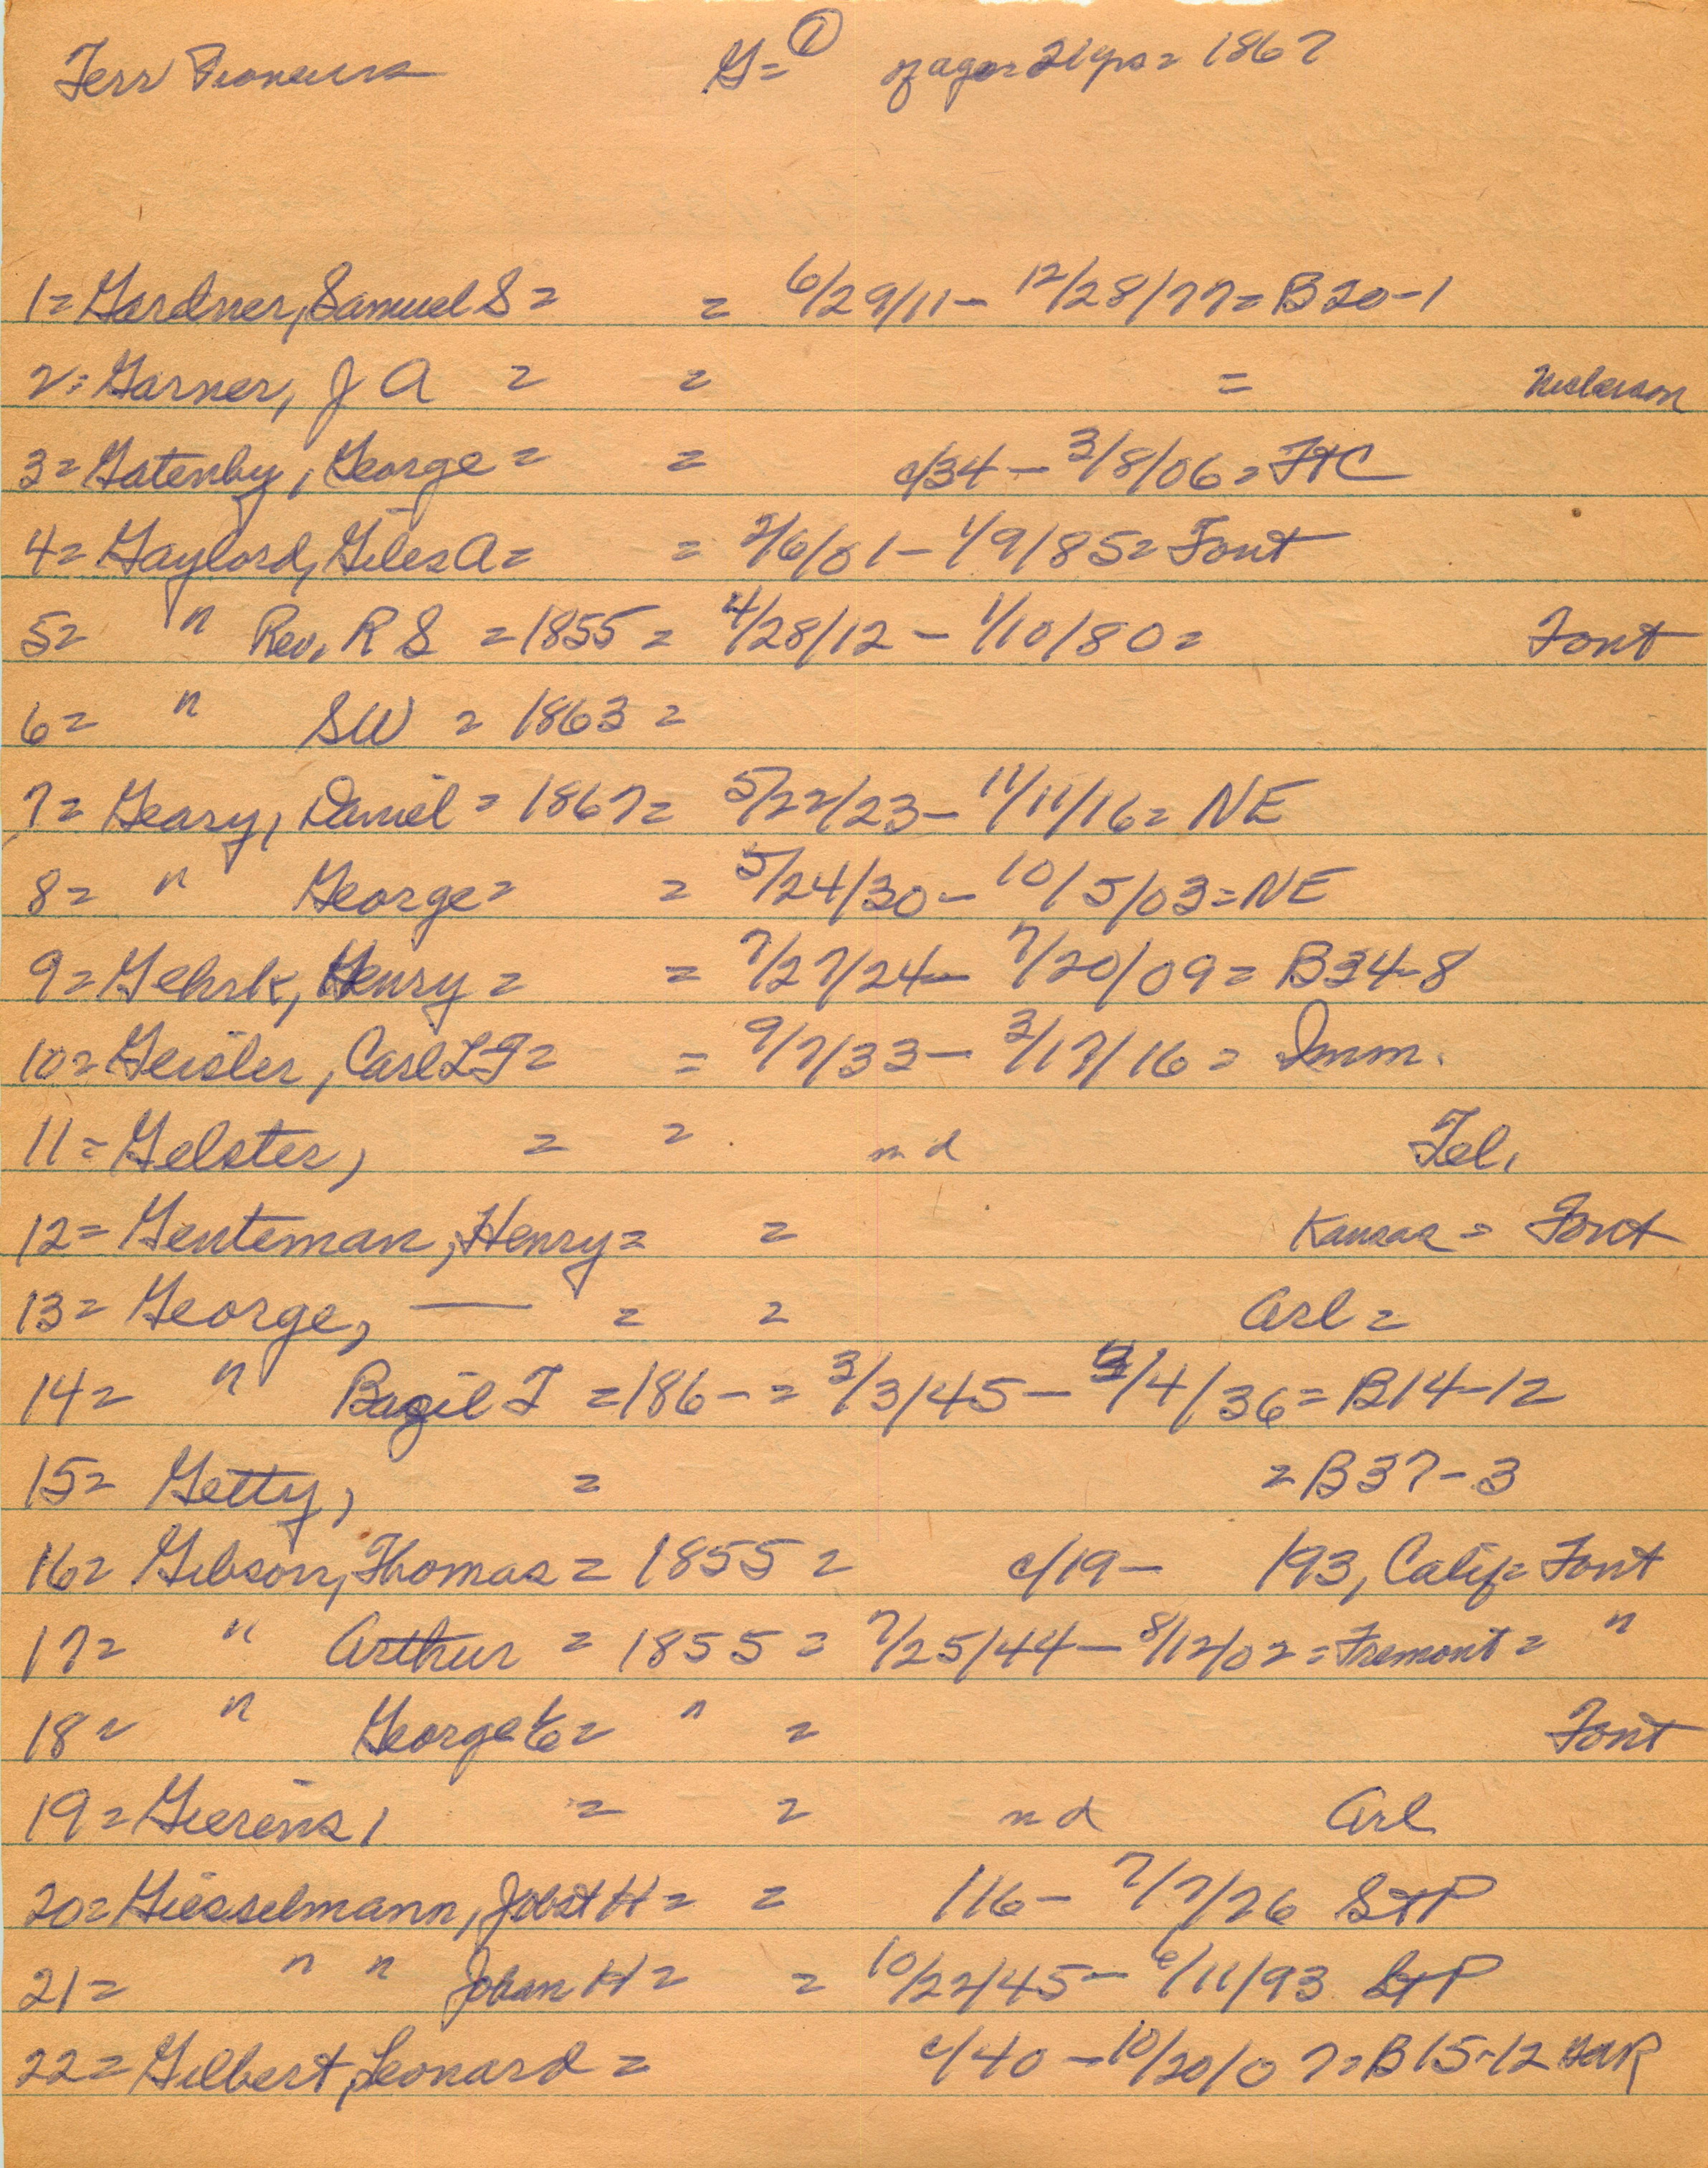 Terr Pioneers G= ① of age= 21 yrs= 1867
1= Gardner, Samuel S = = 6/29/11 - 12/28/77 = B20-1
2= Garner, J A = = = Nickerson
3= Gatenby, George = = c/34 - 3/8/06 = FtC
4= Gaylord, Giles A = = 2/6/01 - 1/9/85 = Font
5= " Rev. R S = 1855 = 4/28/12 - 1/10/80 = Font
6= " SW = 1863 =
7= Geary, Daniel = 1867 = 5/22/23 - 11/11/16 = NE
8= " George = = 5/24/30 - 10/5/03 = NE
9= Gehrk, Henry = = 7/27/24 - 7/20/09 = B34-8
10= Geisler, Carl = = 9/7/33 - 3/17/16 = Imm.
11= Gelster, = = nd Tel.
12= Genteman, Henry = = Kansas = Font
13= George, — = = Arl =
14= " Bazil T = 186- = 3/3/45 - /4/36 = B14-12
15= Getty, = = B37-3
16= Gibson, Thomas = 1855 = c/19 - 193, Calif = Font
17= " Arthur = 1855 = 7/25/44 - 8/12/02 = Fremont = "
18= " George = " = Font
19= Gierens, = = nd Arl
20= Giesselmann, Jobst H = = 116 - 7/7/76 StP
21= " " Johan H = = 10/22/45 - 6/11/93 StP
22= Gilbert, Leonard = c/40 - 10/20/07 = B15-12